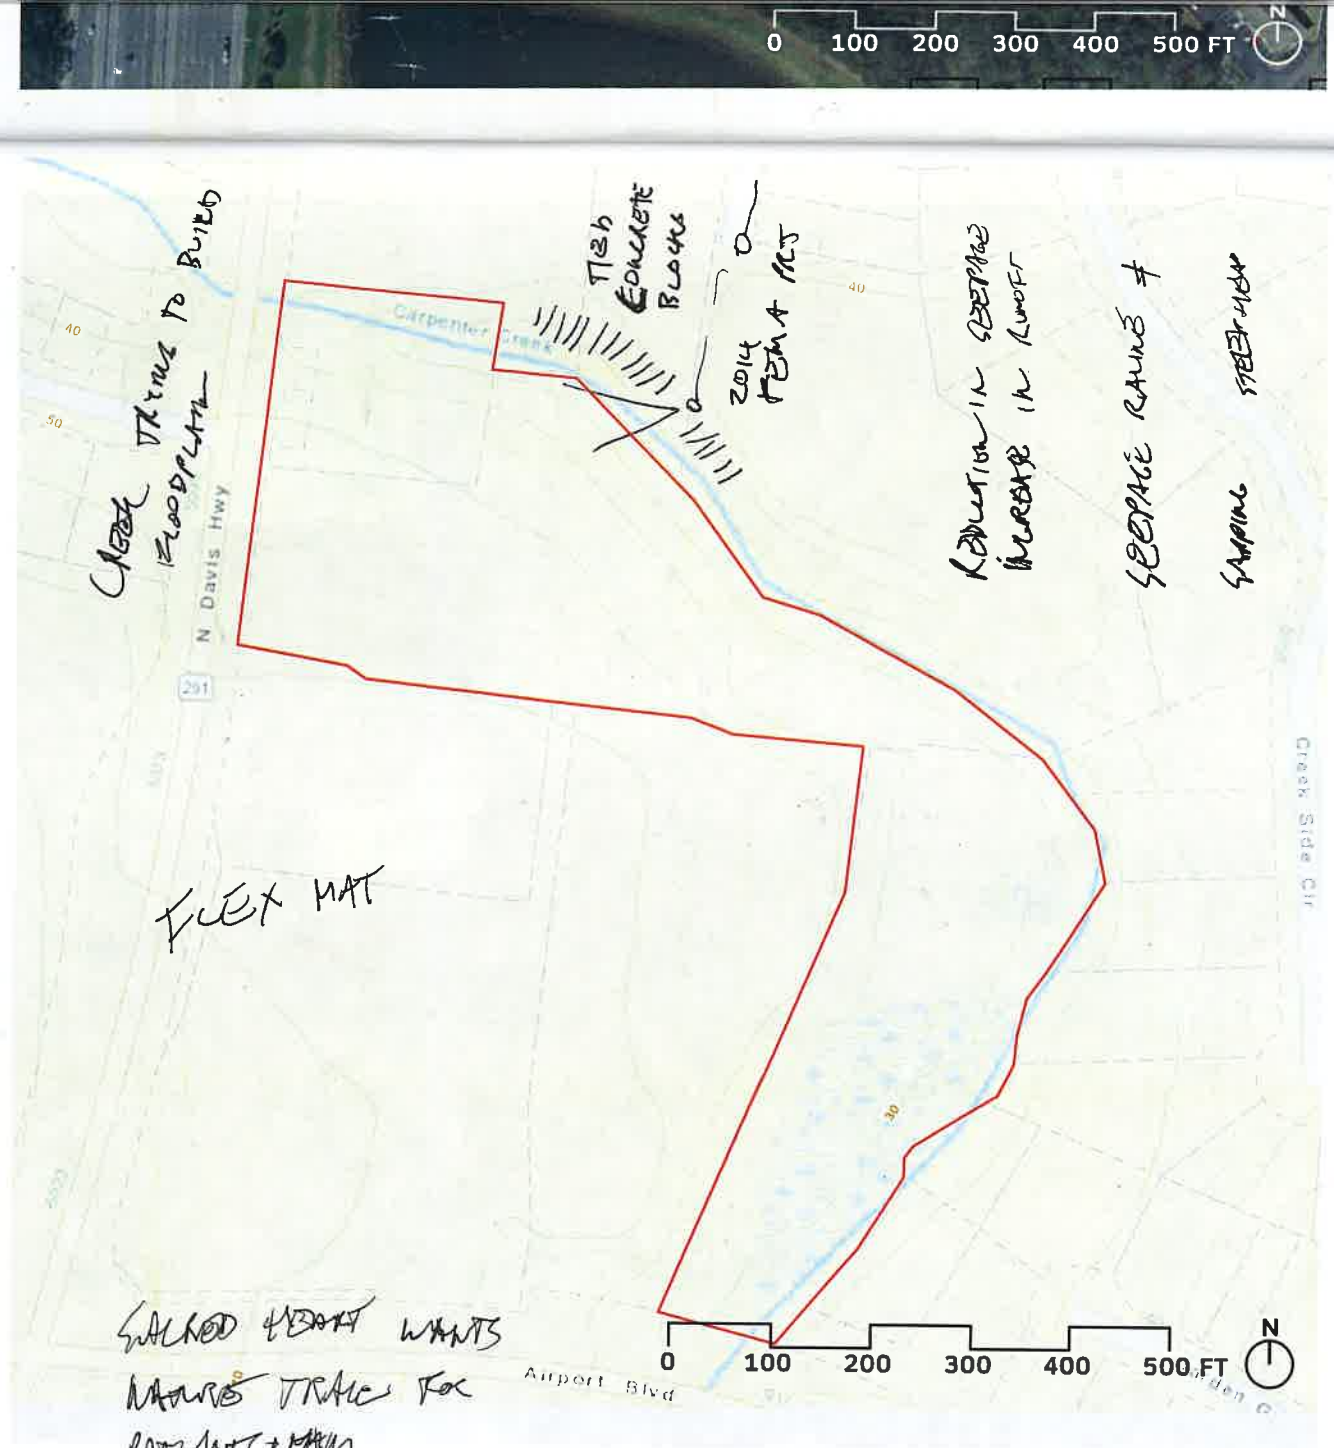 0 100 200 300 400 500 FT
N
CREEK TRYING TO BUILD
FLOODPLAIN
TIED
CONCRETE
BLOCKS
2014
FEMA PRJ
REDUCTION IN SEEPAGE
INCREASE IN RUNOFF
SEEPAGE RAVINE ≠
SAPPING STEEPHEAD
Carpenter Creek
40
40
50
N Davis Hwy
291
Creek Side Cir
FLEX MAT
30
SACRED HEART WANTS
NATURE TRAIL FOR
Airport Blvd
0 100 200 300 400 500 FT
N